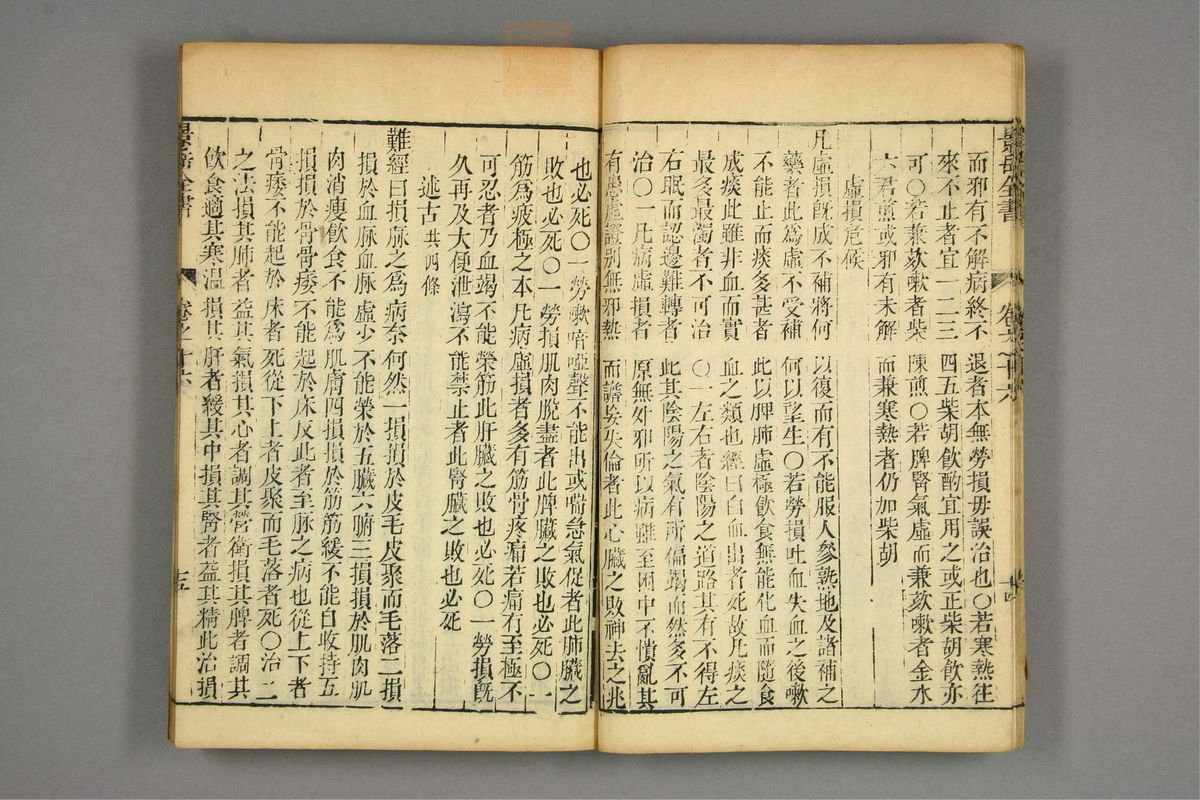 景岳全書
而邪有不解病終不退者本無勞損毋誤治也〇若寒熱往
來不止者宜一二三四五柴胡飲酌宜用之或正柴胡飲亦
可〇若兼欬嗽者柴陳煎〇若脾腎氣虛而兼欬嗽者金水
六君煎或邪有未解而兼寒熱者仍加柴胡
虛損危候
凡虛損旣成不補將何以復而有不能服人參熟地及諸補之
藥者此爲虛不受補何以望生〇若勞損吐血失血之後嗽
不能止而痰多甚者此以脾肺虛極飮食無能化血而隨食
成痰此雖非血而實血之類也經曰白血出者死故凡痰之
最多最濁者不可治〇一左右者陰陽之道路其有不得左
右眠而認邊難轉者此其陰陽之氣有所偏竭而然多不可
治〇一凡病虛損者原無外邪所以病雖至困中不憒亂其
有患虛證別無邪熱而譫妄失倫者此心臟之敗神去之兆
也必死〇一勞嗽喑啞聲不能出或喘急氣促者此肺臟之
敗也必死〇一勞損肌肉脫盡者此脾臟之敗也必死〇一
筋爲疲極之本凡病虛損者多有筋骨疼痛若痛有至極不
可忍者乃血竭不能榮筋此肝臟之敗也必死〇一勞損旣
久再及大便泄瀉不能禁止者此腎臟之敗也必死
述古 共四條
難經曰損脉之爲病奈何然一損損於皮毛皮聚而毛落二損
損於血脉血脉虛少不能榮於五臟六腑三損損於肌肉肌
肉消瘦飮食不能爲肌膚四損損於筋筋緩不能自收持五
損損於骨骨痿不能起於床反此者至脉之病也從上下者
骨痿不能起於床者死從下上者皮聚而毛落者死〇治
之法損其肺者益其氣損其心者調其營衛損其脾者調其
飮食適其寒溫損其肝者緩其中損其腎者益其精此治損
景岳全書
卷之十六
十五